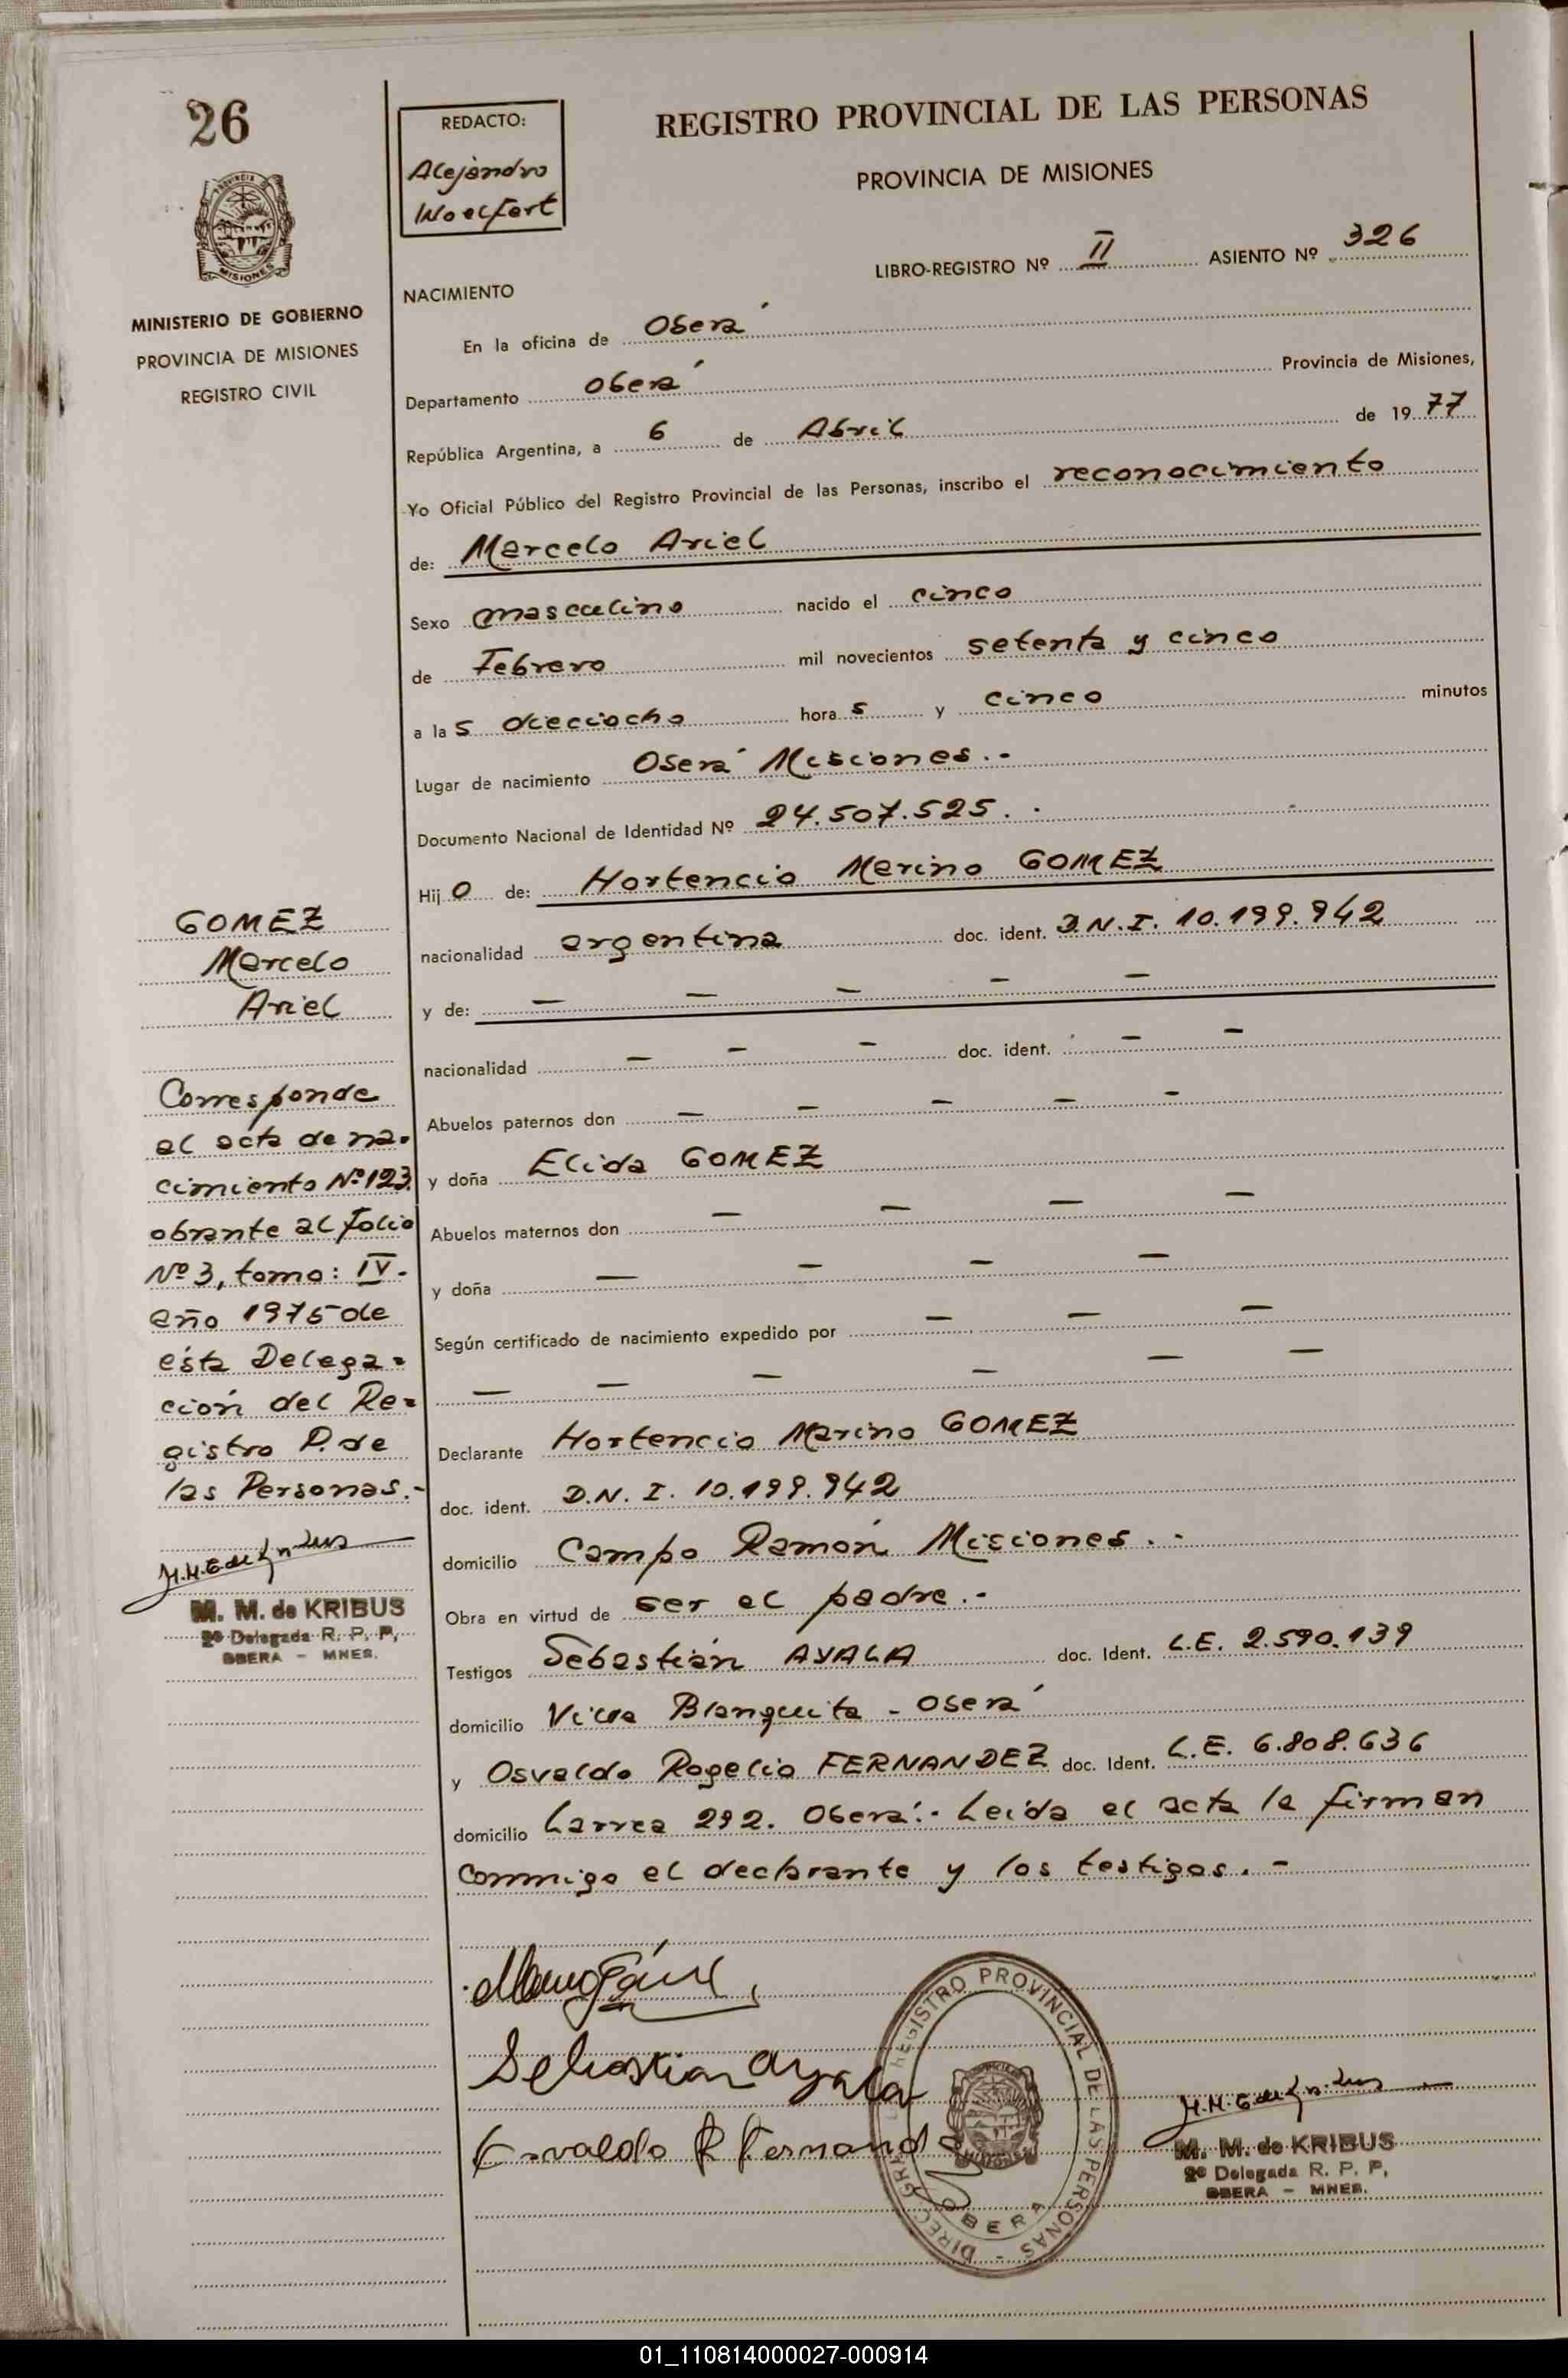 26
REDACTO:
Alejandro
Woelfert
REGISTRO PROVINCIAL DE LAS PERSONAS
PROVINCIA DE MISIONES
LIBRO-REGISTRO Nº II ASIENTO Nº 326
PROVINCIA
MISIONES
MINISTERIO DE GOBIERNO
PROVINCIA DE MISIONES
REGISTRO CIVIL
NACIMIENTO
En la oficina de Oberá
Departamento Oberá Provincia de Misiones,
República Argentina, a 6 de Abril de 1977
Yo Oficial Público del Registro Provincial de las Personas, inscribo el reconocimiento
de: Marcelo Ariel
Sexo masculino nacido el cinco
de Febrero mil novecientos setenta y cinco
a las dieciocho horas y cinco minutos
Lugar de nacimiento Oberá Misiones.-
Documento Nacional de Identidad Nº 24.507.525.
Hijo de: Hortencio Marino GOMEZ
nacionalidad argentina doc. ident. D.N.I. 10.199.942
y de: — — — — —
nacionalidad — — — doc. ident. — —
Abuelos paternos don — — — — —
y doña Elida GOMEZ
Abuelos maternos don — — — —
y doña — — — —
Según certificado de nacimiento expedido por — — —
— — — — — —
Declarante Hortencio Marino GOMEZ
doc. ident. D.N.I. 10.199.942
domicilio Campo Ramón Misiones.-
Obra en virtud de ser el padre.-
Testigos Sebastián AYALA doc. Ident. L.E. 2.590.139
domicilio Villa Blanquita - Oberá
y Osvaldo Rogelio FERNANDEZ doc. Ident. L.E. 6.808.636
domicilio Larrea 292. Oberá.- Leída el acta la firman
conmigo el declarante y los testigos.-
GOMEZ
Marcelo
Ariel
Corresponde
al acta de na-
cimiento Nº 123.
obrante al folio
Nº 3, tomo: IV-
año 1975 de
ésta Delega-
ción del Re-
gistro P. de
las Personas.-
M. M. de KRIBUS
2º Delegada R. P. P.
OBERA - MNES.
Sebastian Ayala
Osvaldo R Fernandez
DIREC. GRAL. REGISTRO PROVINCIAL DE LAS PERSONAS -
OBERA
M. M. de KRIBUS
2º Delegada R. P. P.
OBERA - MNES.
01_110814000027-000914